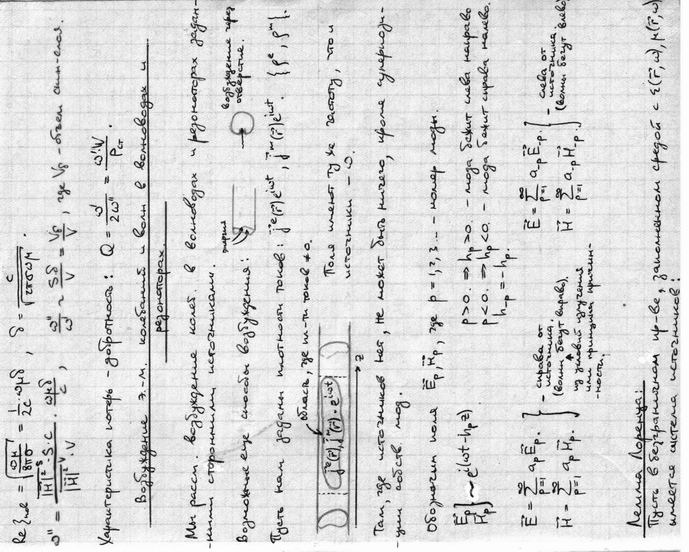 Re ζ_{ωε} = √(ωμ/8πσ) = 1/2c · ωμδ , δ = c/√(2πσωμ)
ω'' = |H|²_S S·c / |H|²_V · V · ωμδ/c , ω''/ω' ~ Sδ/V = V_δ/V , где V_δ - объем скин-слоя.
Характеристика потерь - добротность: Q = ω'/2ω'' = ω'W/P_ст
Возбуждение э.-м. колебаний и волн в волноводах и
резонаторах.
Мы рассм. возбуждение колеб. в волноводах и резонаторах задан-
-ными сторонними источниками.
Возможные еще способы возбуждения: штыри возбуждение через отверстие.
Пусть нам заданы плотности токов: j^e(r)e^{iωt}, j^m(r)e^{iωt}. {ρ^e, ρ^m}.
область, где ст-ти токов ≠0.
j^e(r), j^m(r)·e^{iωt}
z
Поле имеют ту же частоту, что и
источники - ω.
Там, где источников нет, не может быть ничего, кроме суперпози-
-ции собств. мод.
Обозначим поля E_p, H_p, где p = 1,2,3... - номер моды.
E_p, H_p } ~ e^{i(ωt - h_p z)}
p>0. ⇒ h_p>0. - мода бежит слева направо
p<0. ⇒ h_p<0. - мода бежит справа налево.
h_{-p} = -h_p.
E = Σ_{p=1}^∞ a_p E_p.
H = Σ_{p=1}^∞ a_p H_p.
- справа от источника.
(волны бегут вправо).
из условий излучения
или принципа причин-
-ности.
E = Σ_{p=1}^∞ a_{-p} E_{-p}.
H = Σ_{p=1}^∞ a_{-p} H_{-p}.
- слева от источника
(волны бегут влево)
Лемма Лоренца.
Пусть в безграничном пр-ве, заполненном средой с ε(r,ω), μ(r,ω)
имеется система источников: